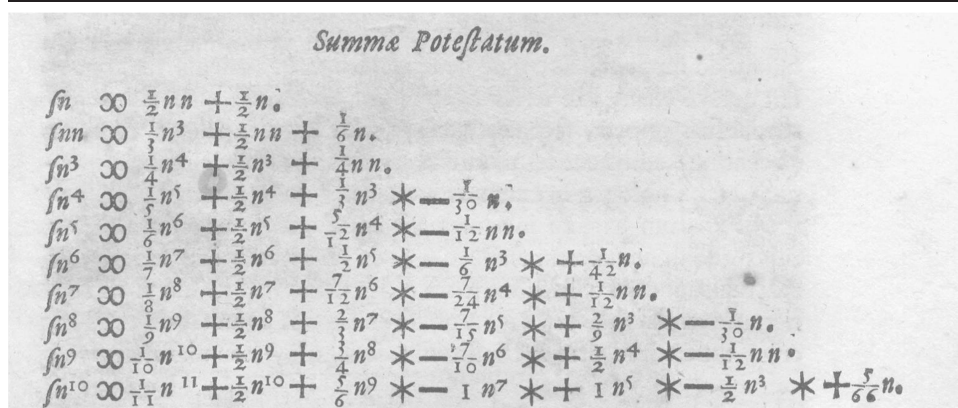 Summæ Poteſtatum.
ſn ꝏ 1/2 nn + 1/2 n.
ſnn ꝏ 1/3 n³ + 1/2 nn + 1/6 n.
ſn³ ꝏ 1/4 n⁴ + 1/2 n³ + 1/4 nn.
ſn⁴ ꝏ 1/5 n⁵ + 1/2 n⁴ + 1/3 n³ * − 1/30 n.
ſn⁵ ꝏ 1/6 n⁶ + 1/2 n⁵ + 5/12 n⁴ * − 1/12 nn.
ſn⁶ ꝏ 1/7 n⁷ + 1/2 n⁶ + 1/2 n⁵ * − 1/6 n³ * + 1/42 n.
ſn⁷ ꝏ 1/8 n⁸ + 1/2 n⁷ + 7/12 n⁶ * − 7/24 n⁴ * + 1/12 nn.
ſn⁸ ꝏ 1/9 n⁹ + 1/2 n⁸ + 2/3 n⁷ * − 7/15 n⁵ * + 2/9 n³ * − 1/30 n.
ſn⁹ ꝏ 1/10 n¹⁰ + 1/2 n⁹ + 3/4 n⁸ * − 7/10 n⁶ * + 1/2 n⁴ * − 1/12 nn.
ſn¹⁰ ꝏ 1/11 n¹¹ + 1/2 n¹⁰ + 5/6 n⁹ * − 1 n⁷ * + 1 n⁵ * − 1/2 n³ * + 5/66 n.